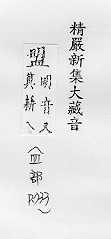 精嚴新集大藏音
盟
明音又
莫耕乀
（皿部